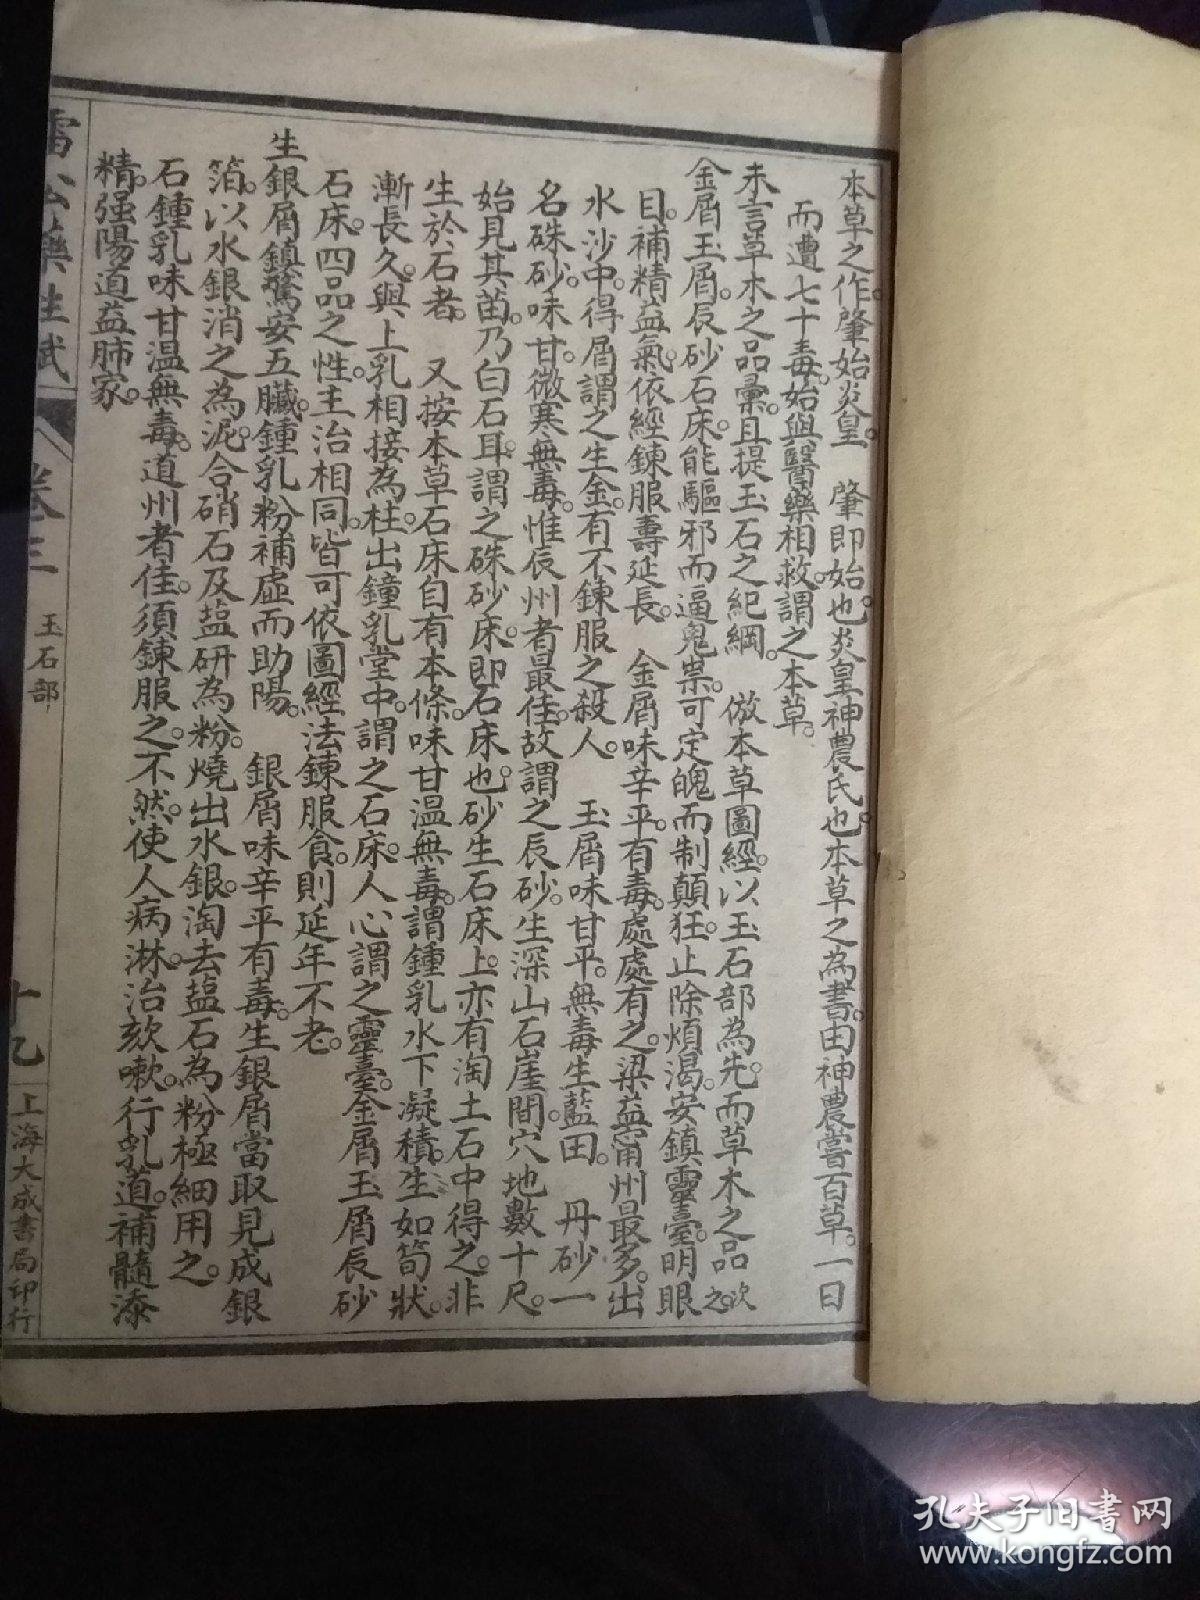 本草之作。肇始炎皇。　肇即始也。炎皇神農氏也。本草之為書。由神農嘗百草。一日
而遭七十毒。始與醫藥相救。謂之本草。
未言草木之品彙。且提玉石之紀綱。　倣本草圖經。以玉石部為先。而草木之品次之
金屑玉屑。辰砂石床。能驅邪而逼鬼祟。可定魄而制顛狂。止除煩渴。安鎮靈臺。明眼
目。補精益氣。依經鍊服壽延長。　金屑味辛平。有毒。處處有之。梁益甯州最多。出
水沙中。得屑謂之生金。有不鍊服之殺人。　玉屑味甘平。無毒生藍田。　丹砂一
名硃砂。味甘。微寒無毒。惟辰州者最佳。故謂之辰砂。生深山石崖間。穴地數十尺。
始見其苗。乃白石耳。謂之硃砂床。即石床也。砂生石床上。亦有淘土石中得之。非
生於石者。　又按本草石床自有本條。味甘溫無毒。謂鍾乳水下凝積。生如筍狀。
漸長久。與上乳相接為柱。出鐘乳堂中。謂之石床。人心謂之靈臺。金屑玉屑辰砂
石床。四品之性。主治相同。皆可依圖經法鍊服食。則延年不老。
生銀屑鎮驚安五臟。鍾乳粉補虛而助陽。　銀屑味辛平有毒。生銀屑當取見成銀
箔。以水銀消之為泥。合硝石及䀋研為粉。燒出水銀。淘去䀋石為粉極細用之。
石鍾乳味甘溫無毒。道州者佳。須鍊服之。不然。使人病淋。治欬嗽。行乳道。補髓添
精。强陽道益肺家。
雷公藥性賦
卷三　玉石部
十九
上海大成書局印行
孔夫子旧書网
www.kongfz.com